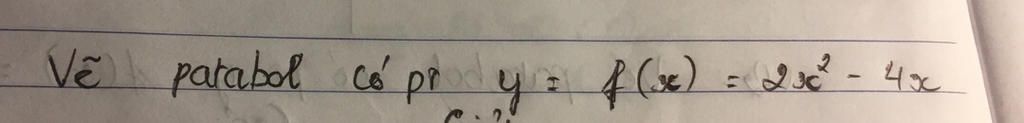 Vẽ parabol có pt y = f(x) = 2x² - 4x